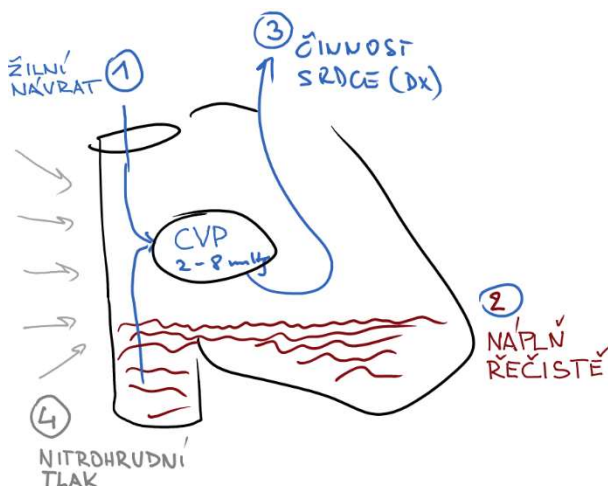 1
ŽILNÍ
NÁVRAT
3
ČINNOST
SRDCE (DX)
CVP
2-8 mmHg
2
NÁPLŇ
ŘEČIŠTĚ
4
NITROHRUDNÍ
TLAK